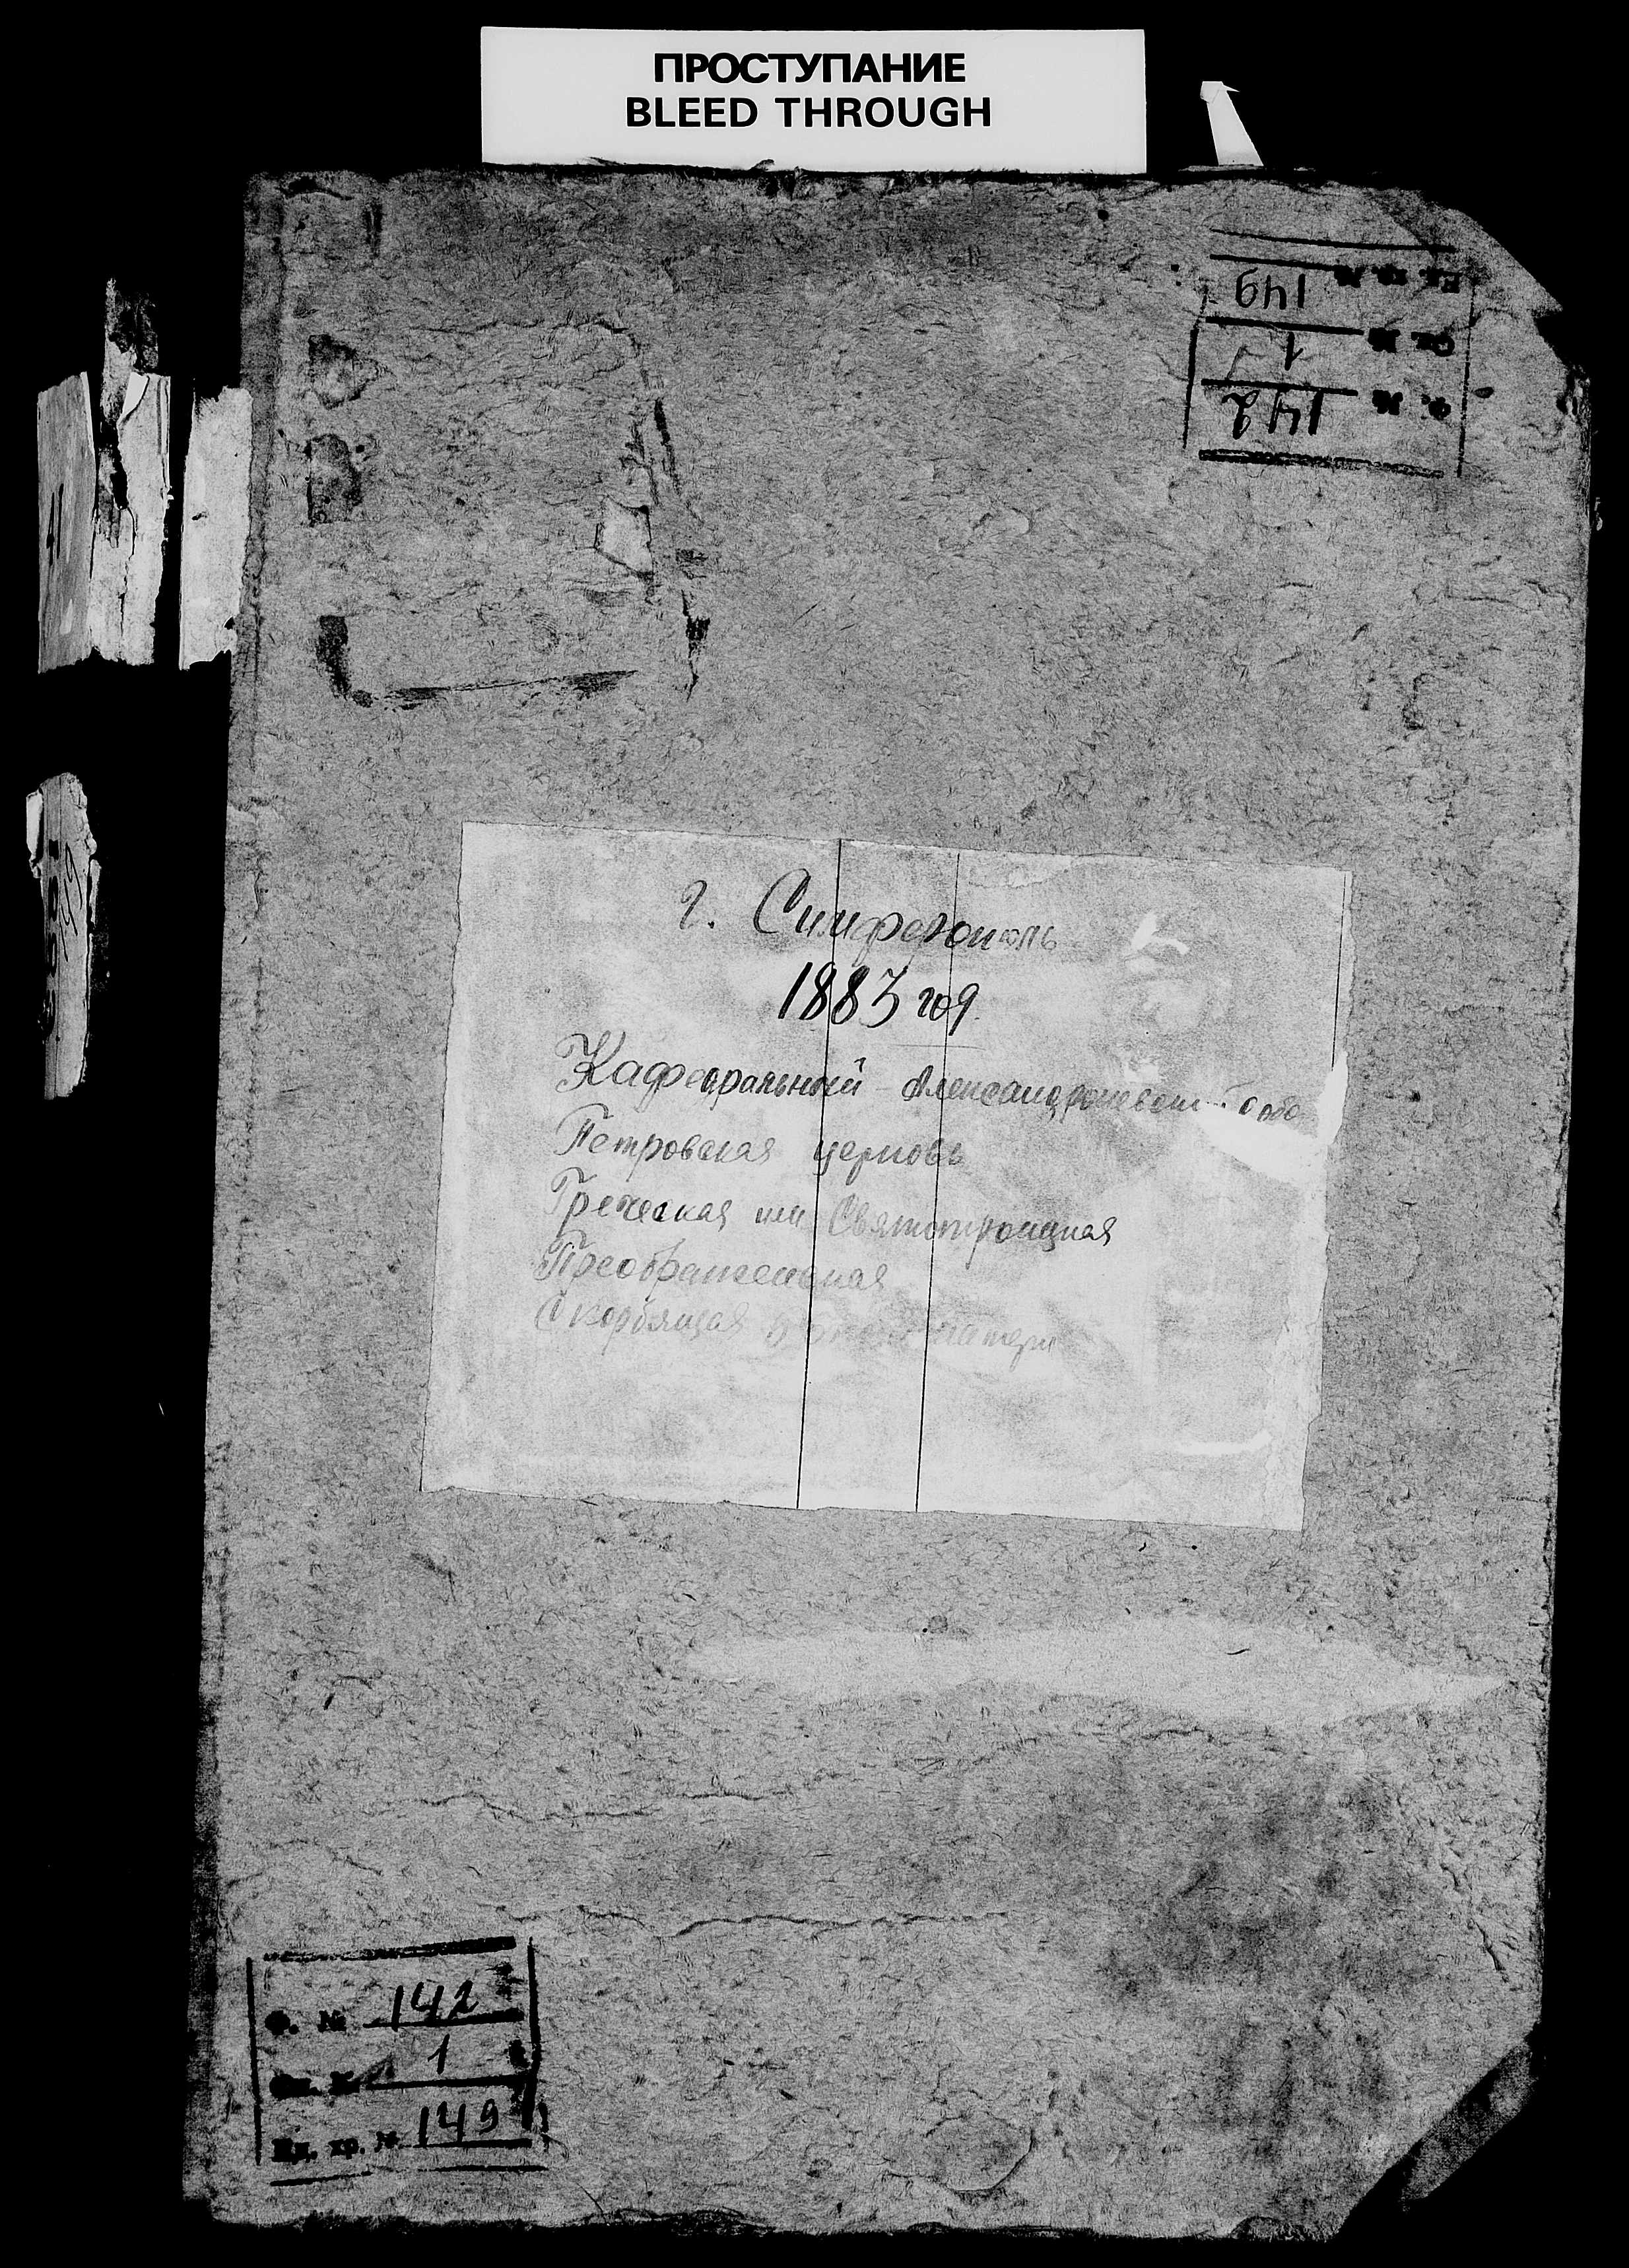 ПРОСТУПАНИЕ
BLEED THROUGH
Ед. хр. № 149
Оп. № 1
Ф. № 142
г. Симферополь
1883 год
Кафедральный - Александроневский Собо
Петровская церковь
Греческая или Святотроицкая
Преображенская
Скорбящая матери
Ф. № 142
Оп. № 1
Ед. хр. № 149